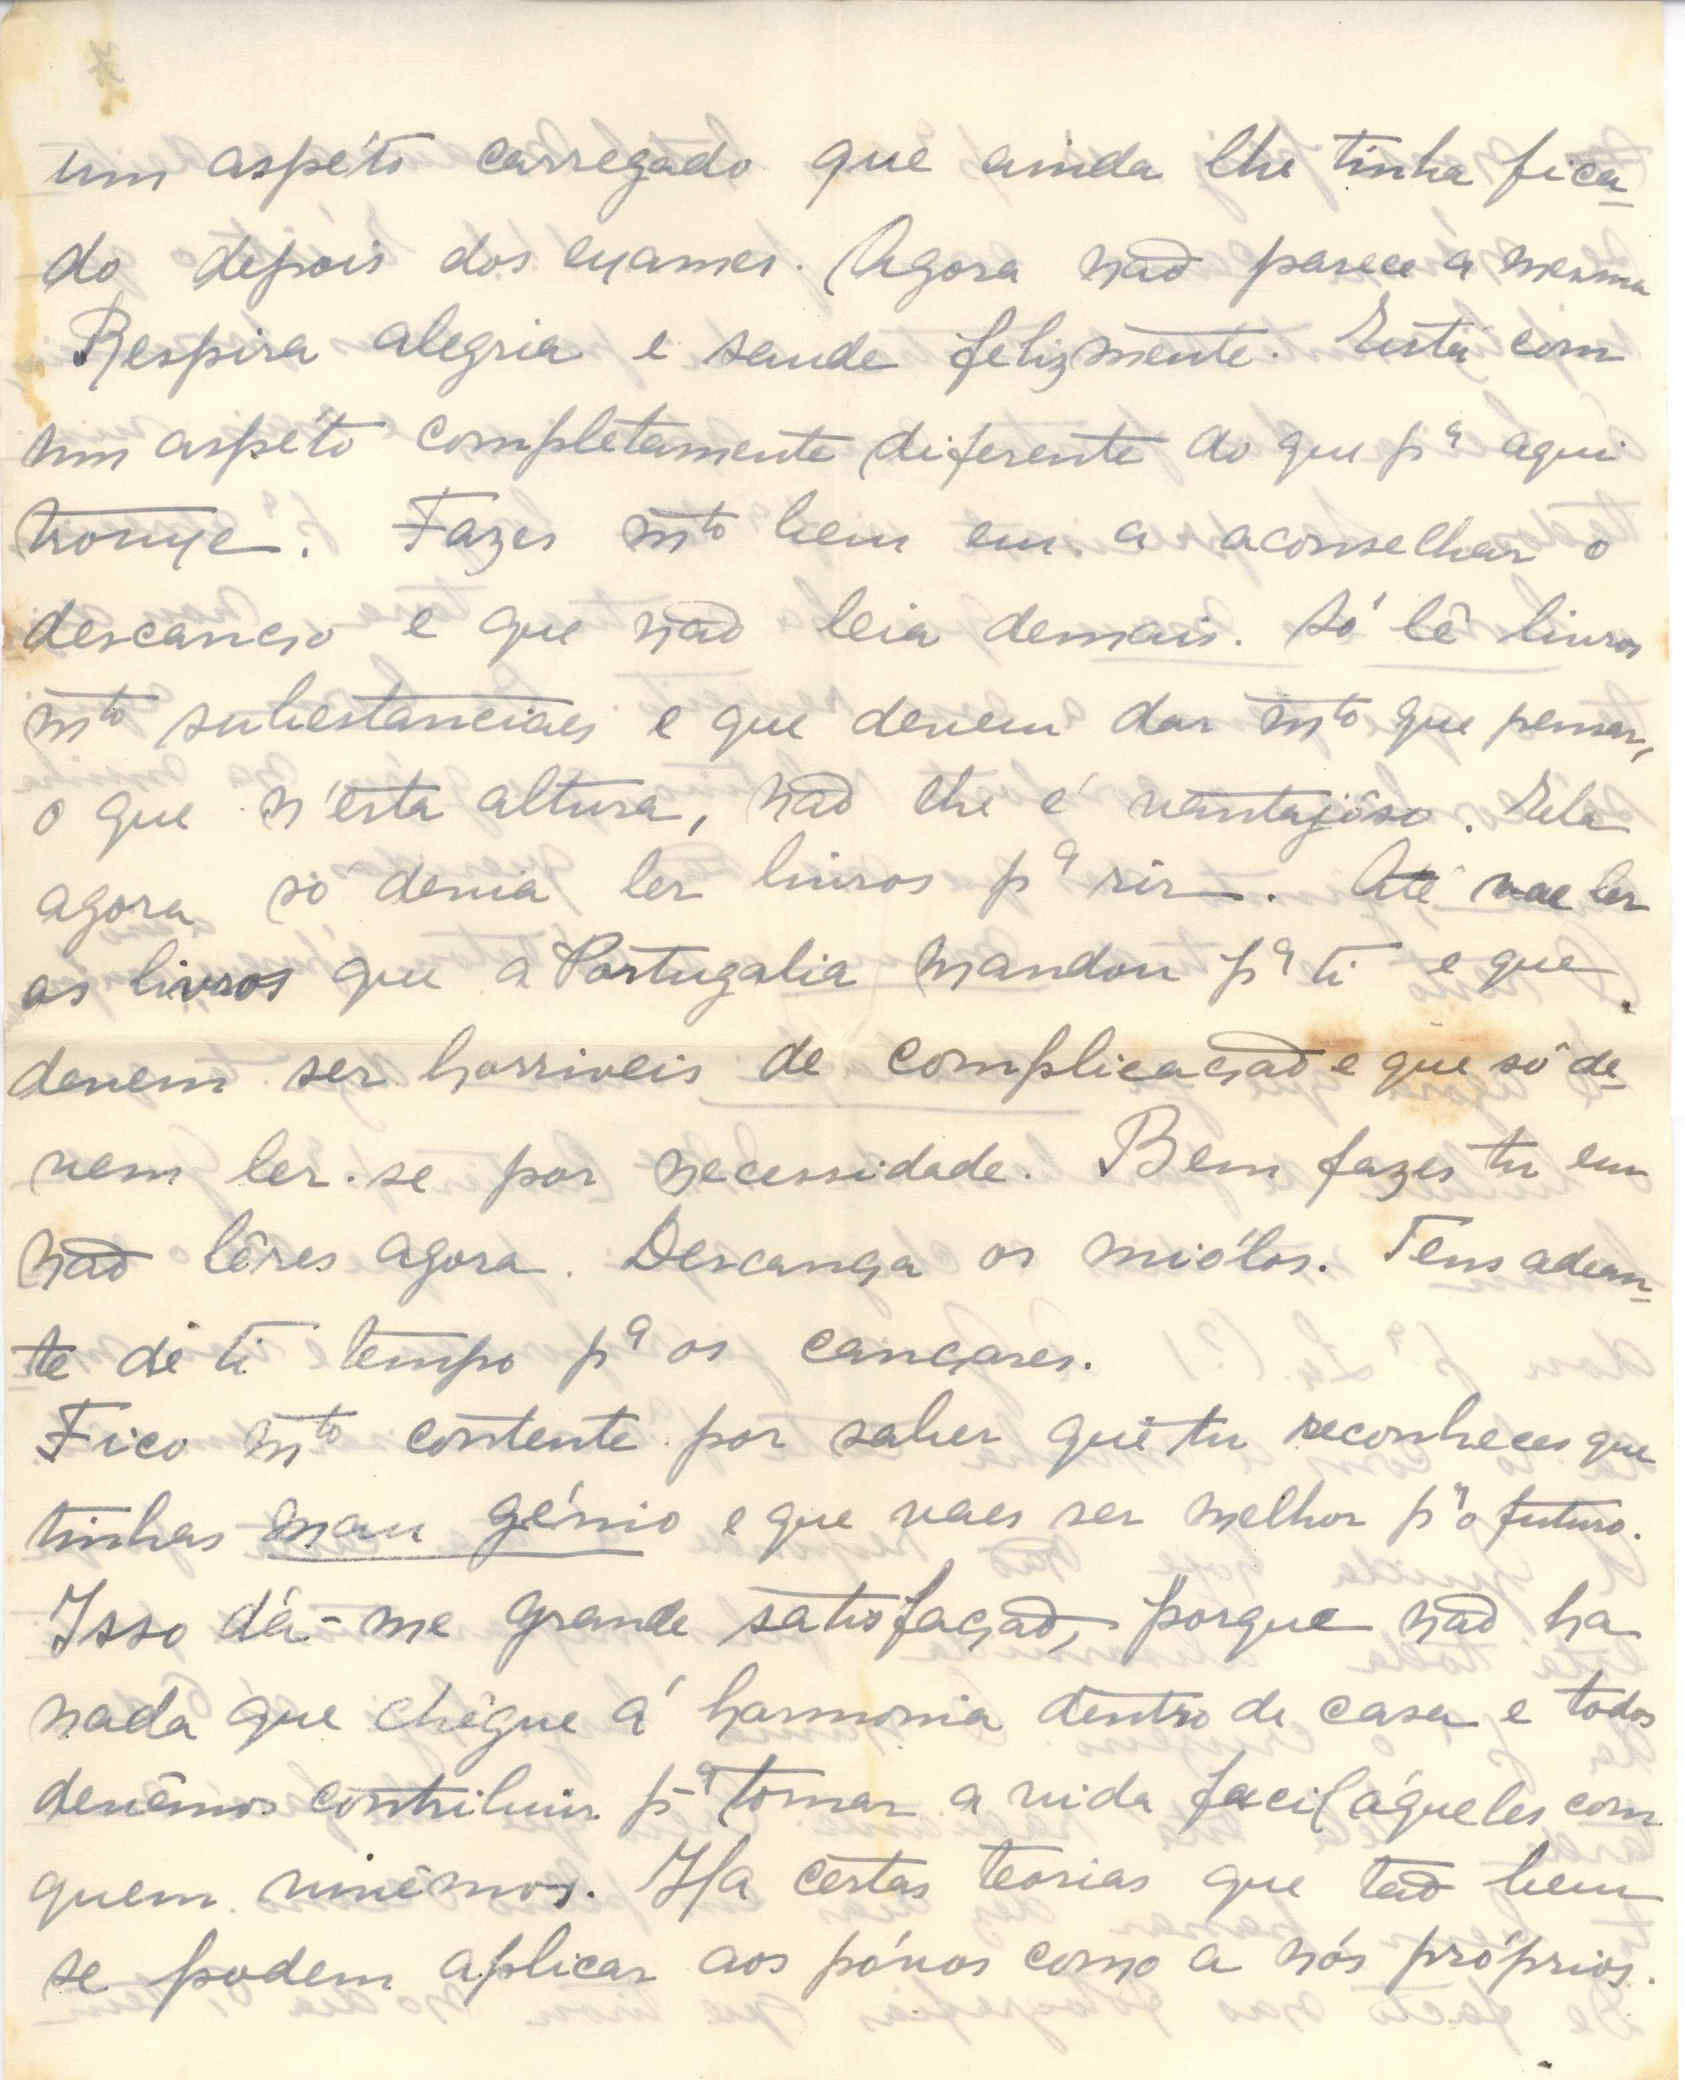 um aspéto carregado que ainda lhe tinha fica-
do depois dos exames. Agora não parece a mesma
Respira alegria e saude felizmente. Está com
um aspéto completamente diferente do que pª aqui
trouxe. Fazes mto bem em a aconselhar o
descanço e que não leia demais. Só lê livros
mto substanciaes e que devem dar mto que pensar,
o que n'esta altura, não lhe é vantajôso. Ela
agora só devia ler livros pª rir. Até vae ler
os livros que a Portugalia mandou pª ti e que
devem ser horriveis de complicação e que só de-
vem ler-se por necessidade. Bem fazes tu em
não lêres agora. Descança os miólos. Tens adean-
te de ti tempo pª os cançares.
Fico mto contente por saber que tu reconheces que
tinhas mau génio e que vaes ser melhor pª o futuro.
Isso dá-me grande satisfação, porque não ha
nada que chegue á harmonia dentro de casa e todos
devêmos contribuir pª tornar a vida facil áqueles com
quem vivêmos. Ha certas teorias que tão bem
se podem aplicar aos póvos como a nós próprios.